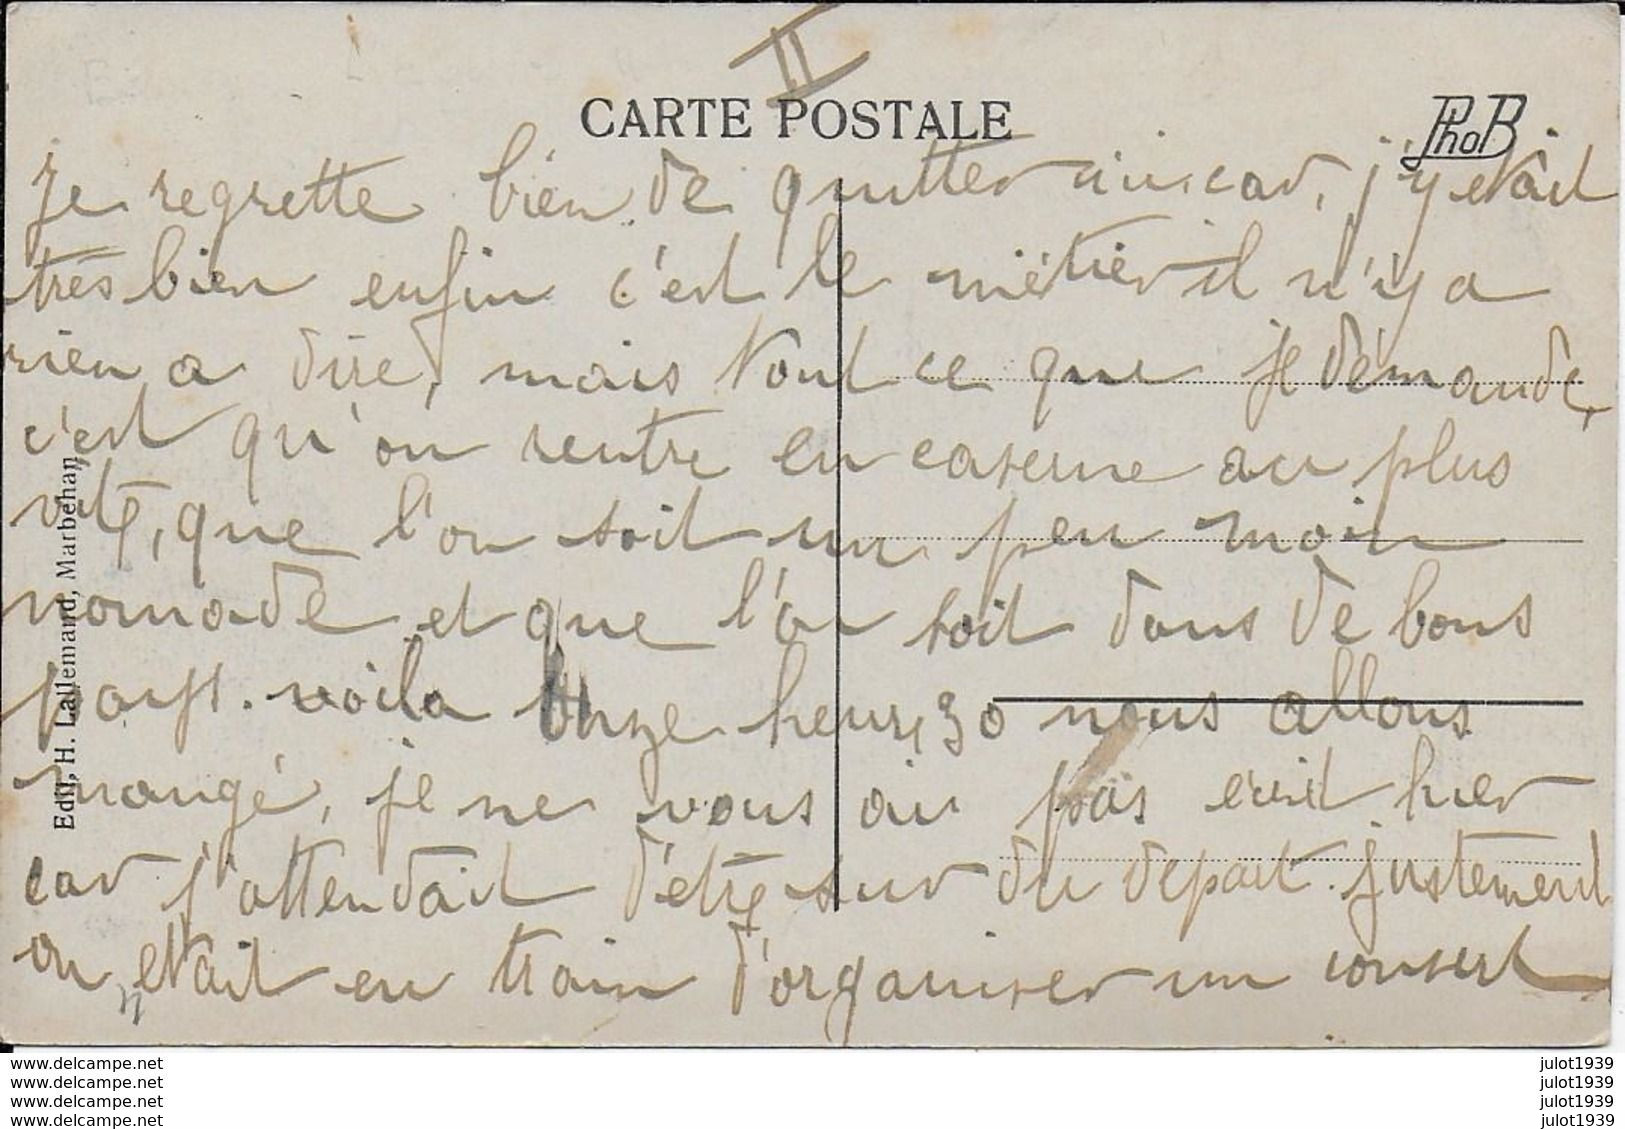 II
CARTE POSTALE
PhoB
Je regrette bien de quitter car, j'y etait
très bien enfin c'est le métier il n'y a
rien a dire, mais tout ce que je demande,
c'est qu'on rentre en caserne au plus
vite, que l'on soit un peu moin
nomade et que l'on soit dans de bons
pays. voila onze heure 30 nous allons
mangé, je ne vous ai pas ecrit hier
car j'attendait d'être sur du depart. justement
on etait en train d'organiser un consert
Edit. H. Lallemand, Marbehan
www.delcampe.net
www.delcampe.net
www.delcampe.net
www.delcampe.net
julot1939
julot1939
julot1939
julot1939